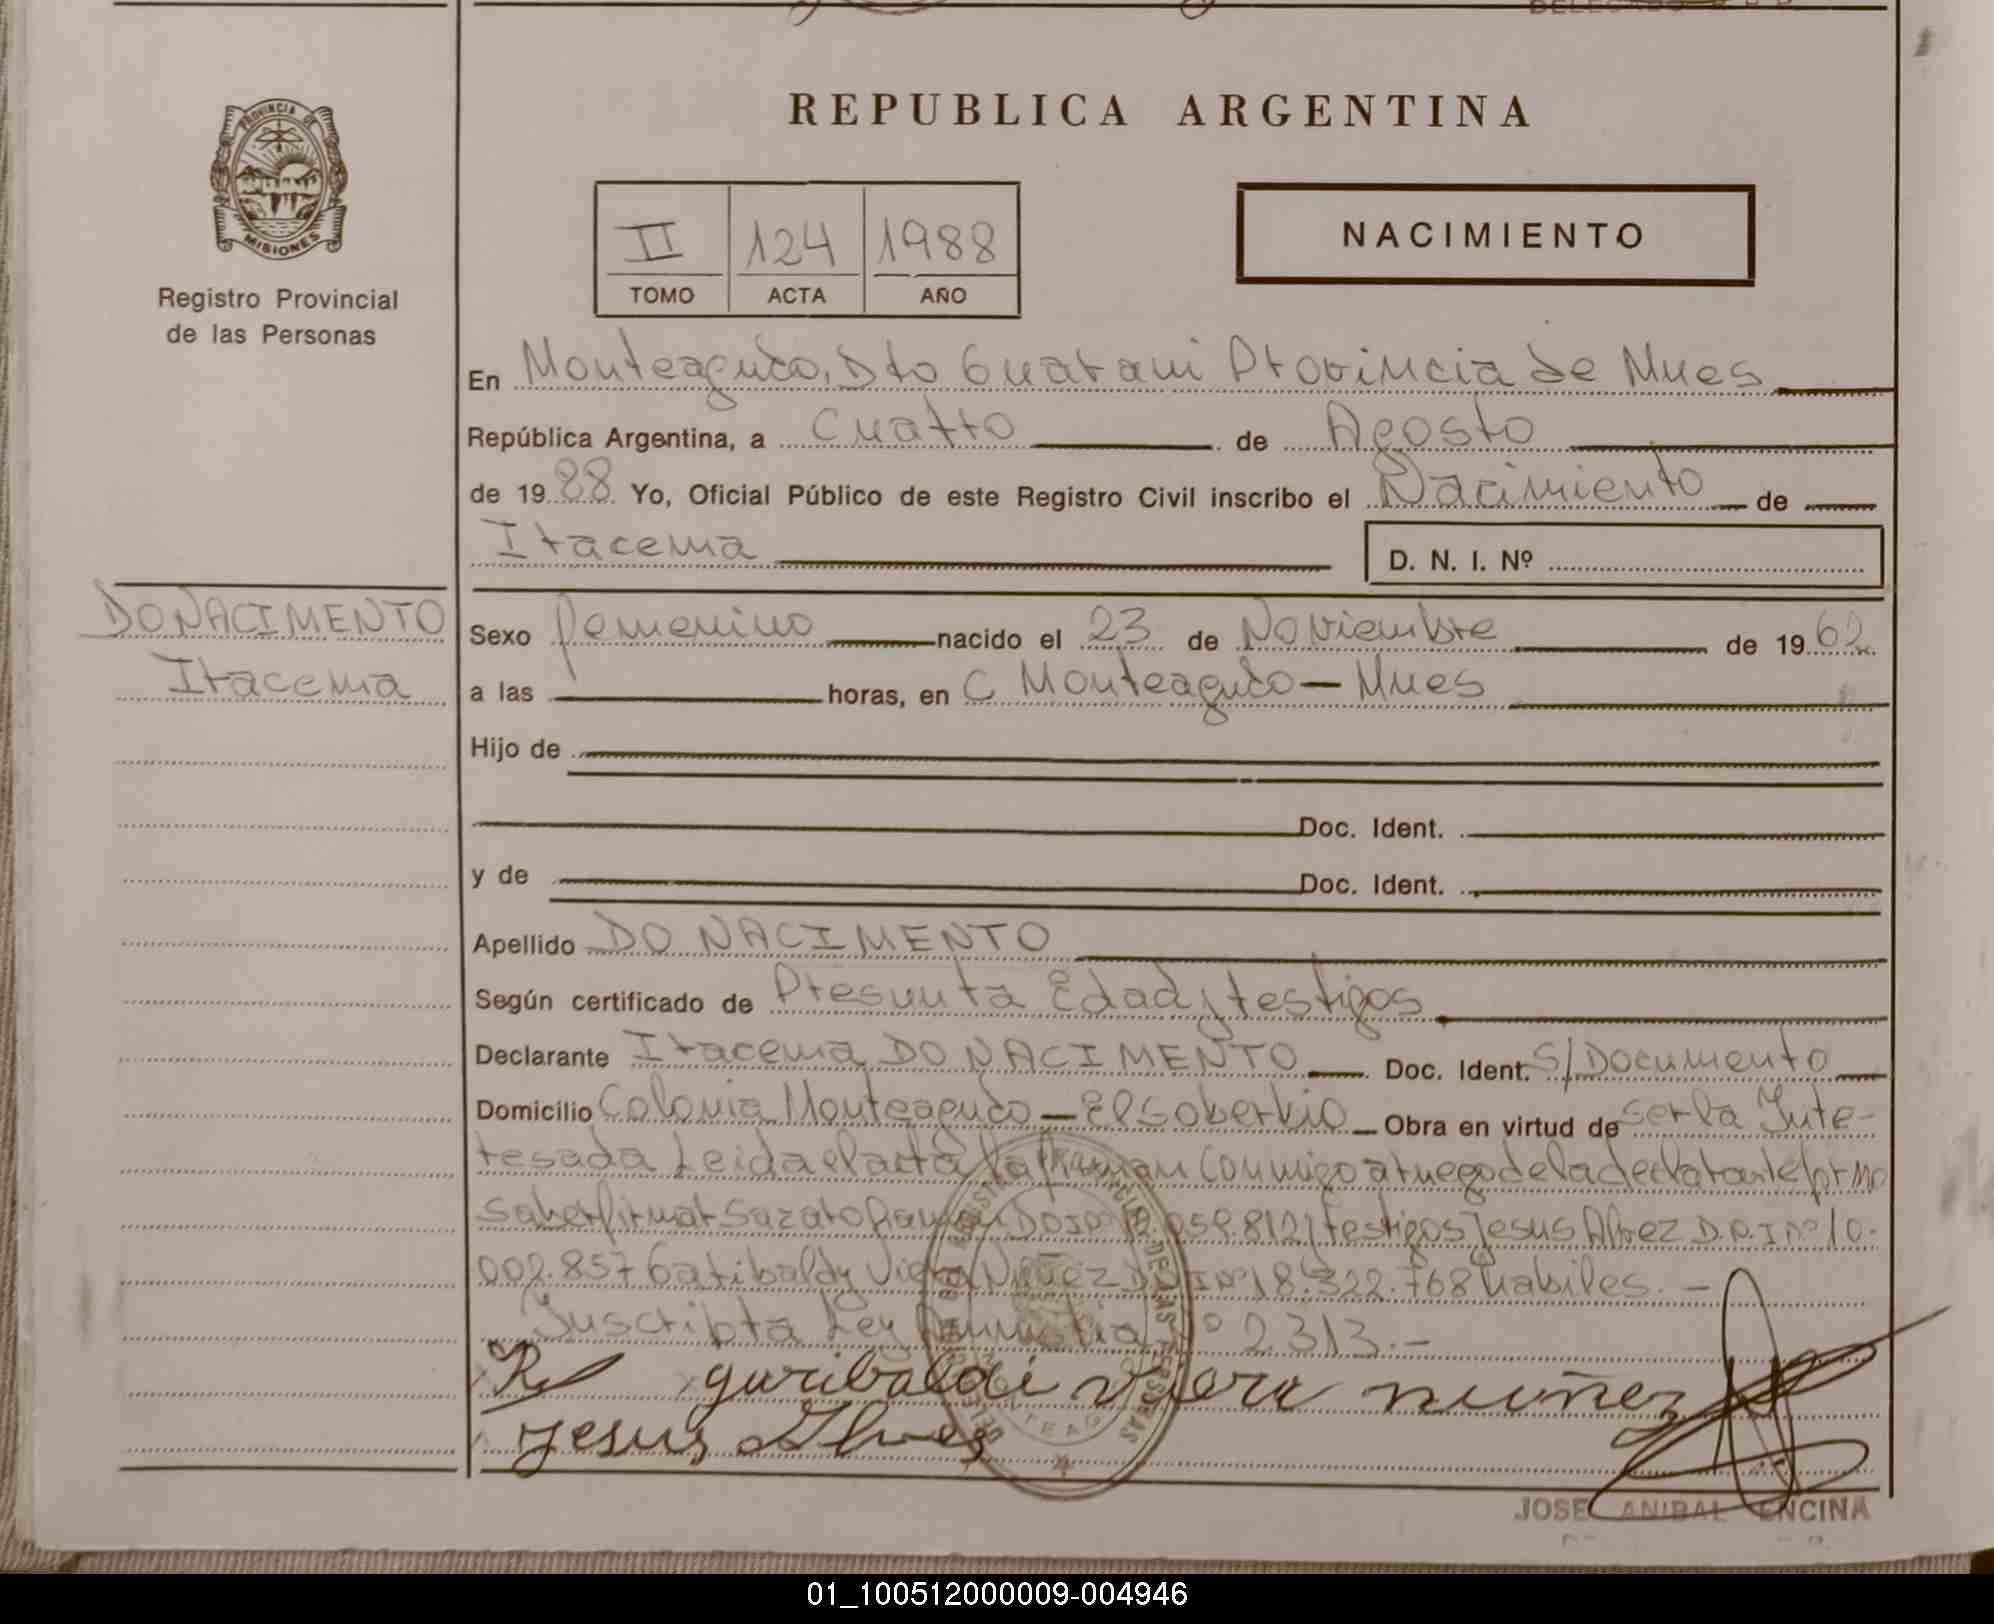 PROVINCIA DE
MISIONES
Registro Provincial
de las Personas
REPUBLICA ARGENTINA
II 124 1988
TOMO ACTA AÑO
NACIMIENTO
En Monteagudo, Dto Guarani Provincia de Mnes
República Argentina, a Cuatro de Agosto
de 1988 Yo, Oficial Público de este Registro Civil inscribo el Nacimiento de
Itacema
D. N. I. Nº
DO NACIMENTO
Itacema
Sexo femenino nacido el 23 de Noviembre de 1962
a las horas, en C Monteagudo - Mnes
Hijo de
Doc. Ident.
y de Doc. Ident.
Apellido DO NACIMENTO
Según certificado de Presunta Edad y testigos
Declarante Itacema DO NACIMENTO Doc. Ident. S/Documento
Domicilio Colonia Monteagudo - El Soberbio Obra en virtud de ser la Inte-
resada Leida el acta la firman conmigo a ruego de la declarante por no
saber firmar Ramon 059.812 y testigos Jesus D.N.I nº 10.
002.857 Garibaldy Viera Nuñez D.N.I nº 18.322.768 habiles. -
Inscripta Ley Amnistia Nº 2313.-
garibaldi viera nuñez
Jesus Alvez
JOSE ANIBAL ENCINA
01_100512000009-004946